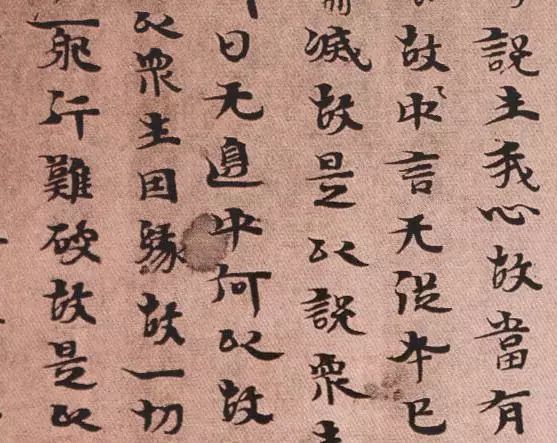 說生我心故當有
故中言无從本已
而滅故是以說衆生
曰无邊中何以故
以衆生因緣故一切
行難破故是以